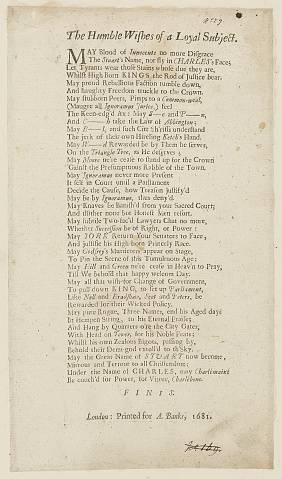 The Humble Wishes of a Loyal Subject.
MAY Blood of Innocents no more Disgrace
The Stuart's Name, nor fly in CHARLES's Face,
Let Tyrants wear those Stains whose due they are,
Whilst High Born KINGS the Rod of Justice bear.
May proud Rebellious Faction tumble down,
And haughty Freedom truckle to the Crown.
May stubborn Peers, Pimps to a Common-weal,
(Maugre all Ignoramus Juries) feel
The Keen-edg'd Ax: May
And take the Law at Abbington;
May and such Cut th'rists understand
The jerk of their own Hireling Hand.
May Rewarded be by Them he serves,
On the Triangle Tree, as He deserves;
May More ne're cease to stand up for the Crown
Gainst the Presumptuous Rabble of the Town.
May Ignoramus never more Present
It self in Court until a Parliament
Decide the Cause, how Treason justify'd
May be by Ignoramus, thus deny'd.
May Knaves be Banish'd from your Sacred Court;
And thither none but Honest Men resort.
May subtile Two-fac'd Lawyers Chat no more,
Whether Succession be of Right, or Power:
May YORK Return Your Senators to Face,
And justifie his High-born Princely Race.
May Godfrey's Murtherers appear on Stage,
To Pin the Scene of this Tumultuous Age;
May Hill and Green ne're cease in Heav'n to Pray,
Till We behold that happy welcome Day.
May all that wish for Change of Government,
To pull down KING, to set up Parliament,
Like Nell and Bradshaw, Scot and Peters, be
Rewarded for their Wicked Policy.
May pure Rogue, Three Names, end his Aged days
In Hempen String, to his Eternal Praise;
And Hang by Quarters o're the City Gates,
With Head on Tower, for his Noble Feats;
Whilst his own Zealous Bigots, passing by,
Behold their Demi-god extoll'd to th'Sky.
May the Great Name of STUART now become,
Mirrour and Terrour to all Christendom:
Under the Name of CHARLES, may Charlemaine
Be couch'd for Power, for Virtue, Charlebone.
FINIS.
London: Printed for A. Banks, 1681.